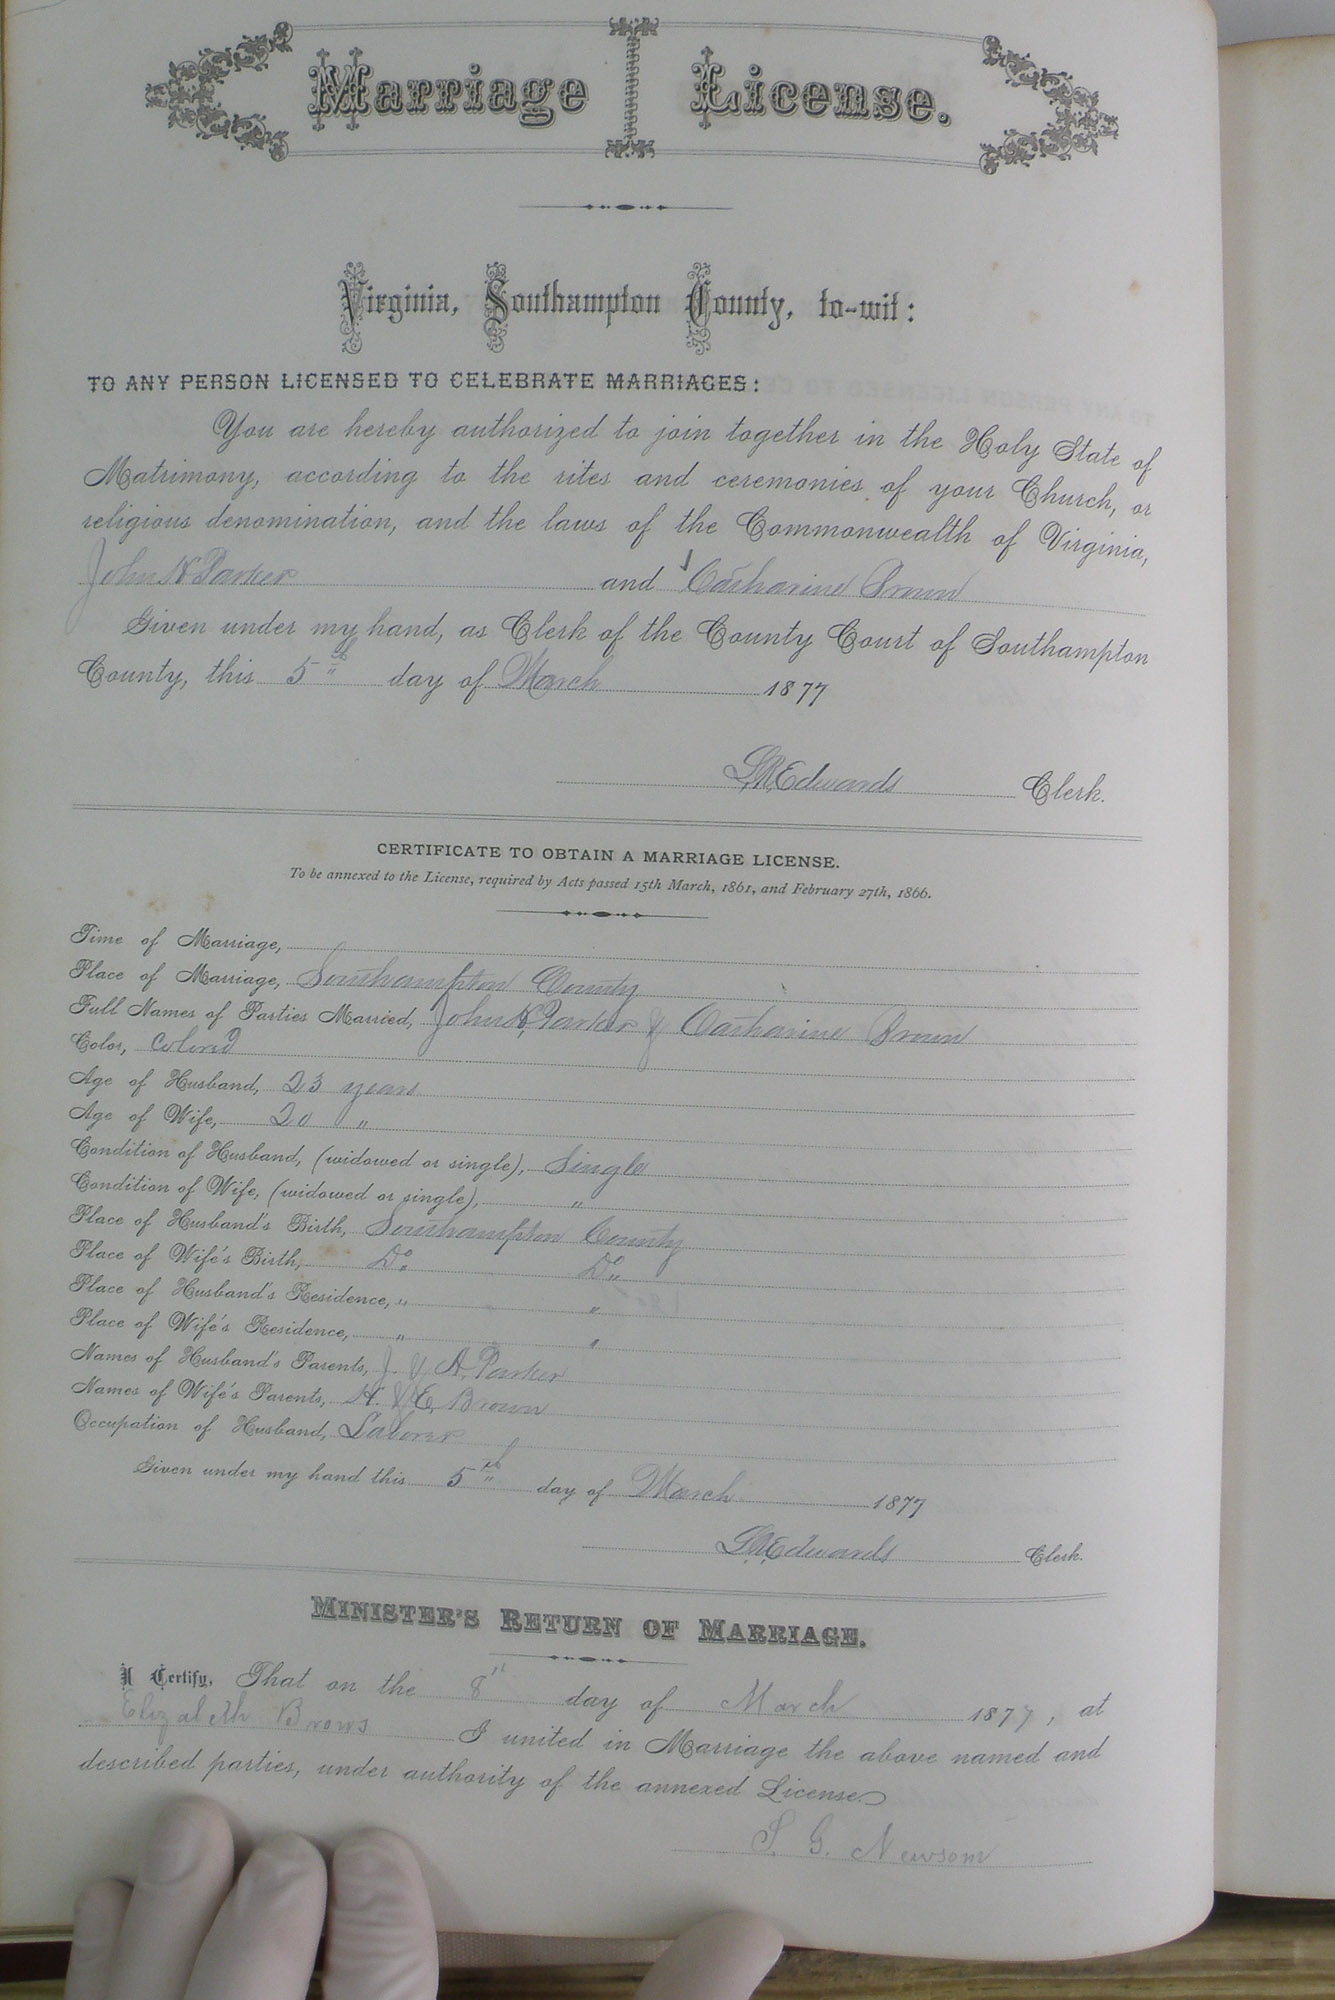 Marriage License.
Virginia, Southampton County, to-wit:
TO ANY PERSON LICENSED TO CELEBRATE MARRIAGES:
You are hereby authorized to join together in the Holy State of
Matrimony, according to the rites and ceremonies of your Church, or
religious denomination, and the laws of the Commonwealth of Virginia,
John H Parker and Catharine Brown
Given under my hand, as Clerk of the County Court of Southampton
County, this 5th day of March 1877
L.R. Edwards Clerk.
CERTIFICATE TO OBTAIN A MARRIAGE LICENSE.
To be annexed to the License, required by Acts passed 15th March, 1861, and February 27th, 1866.
Time of Marriage,
Place of Marriage, Southampton County
Full Names of Parties Married, John H. Parker & Catharine Brown
Color, Colored
Age of Husband, 23 years
Age of Wife, 20 "
Condition of Husband, (widowed or single), Single
Condition of Wife, (widowed or single), "
Place of Husband's Birth, Southampton County
Place of Wife's Birth, Do. Do.
Place of Husband's Residence, " "
Place of Wife's Residence, " "
Names of Husband's Parents, J. & A. Parker
Names of Wife's Parents, H. & E. Brown
Occupation of Husband, Laborer
Given under my hand this 5th day of March 1877
L.R. Edwards Clerk.
MINISTER'S RETURN OF MARRIAGE.
I Certify, That on the 8th day of March 1877, at
Elizabeth Browns I united in Marriage the above named and
described parties, under authority of the annexed License.
S. G. Newsom